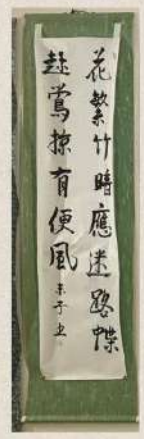 花繁竹暗應迷路蝶
趁鶯掠有便風 朱子